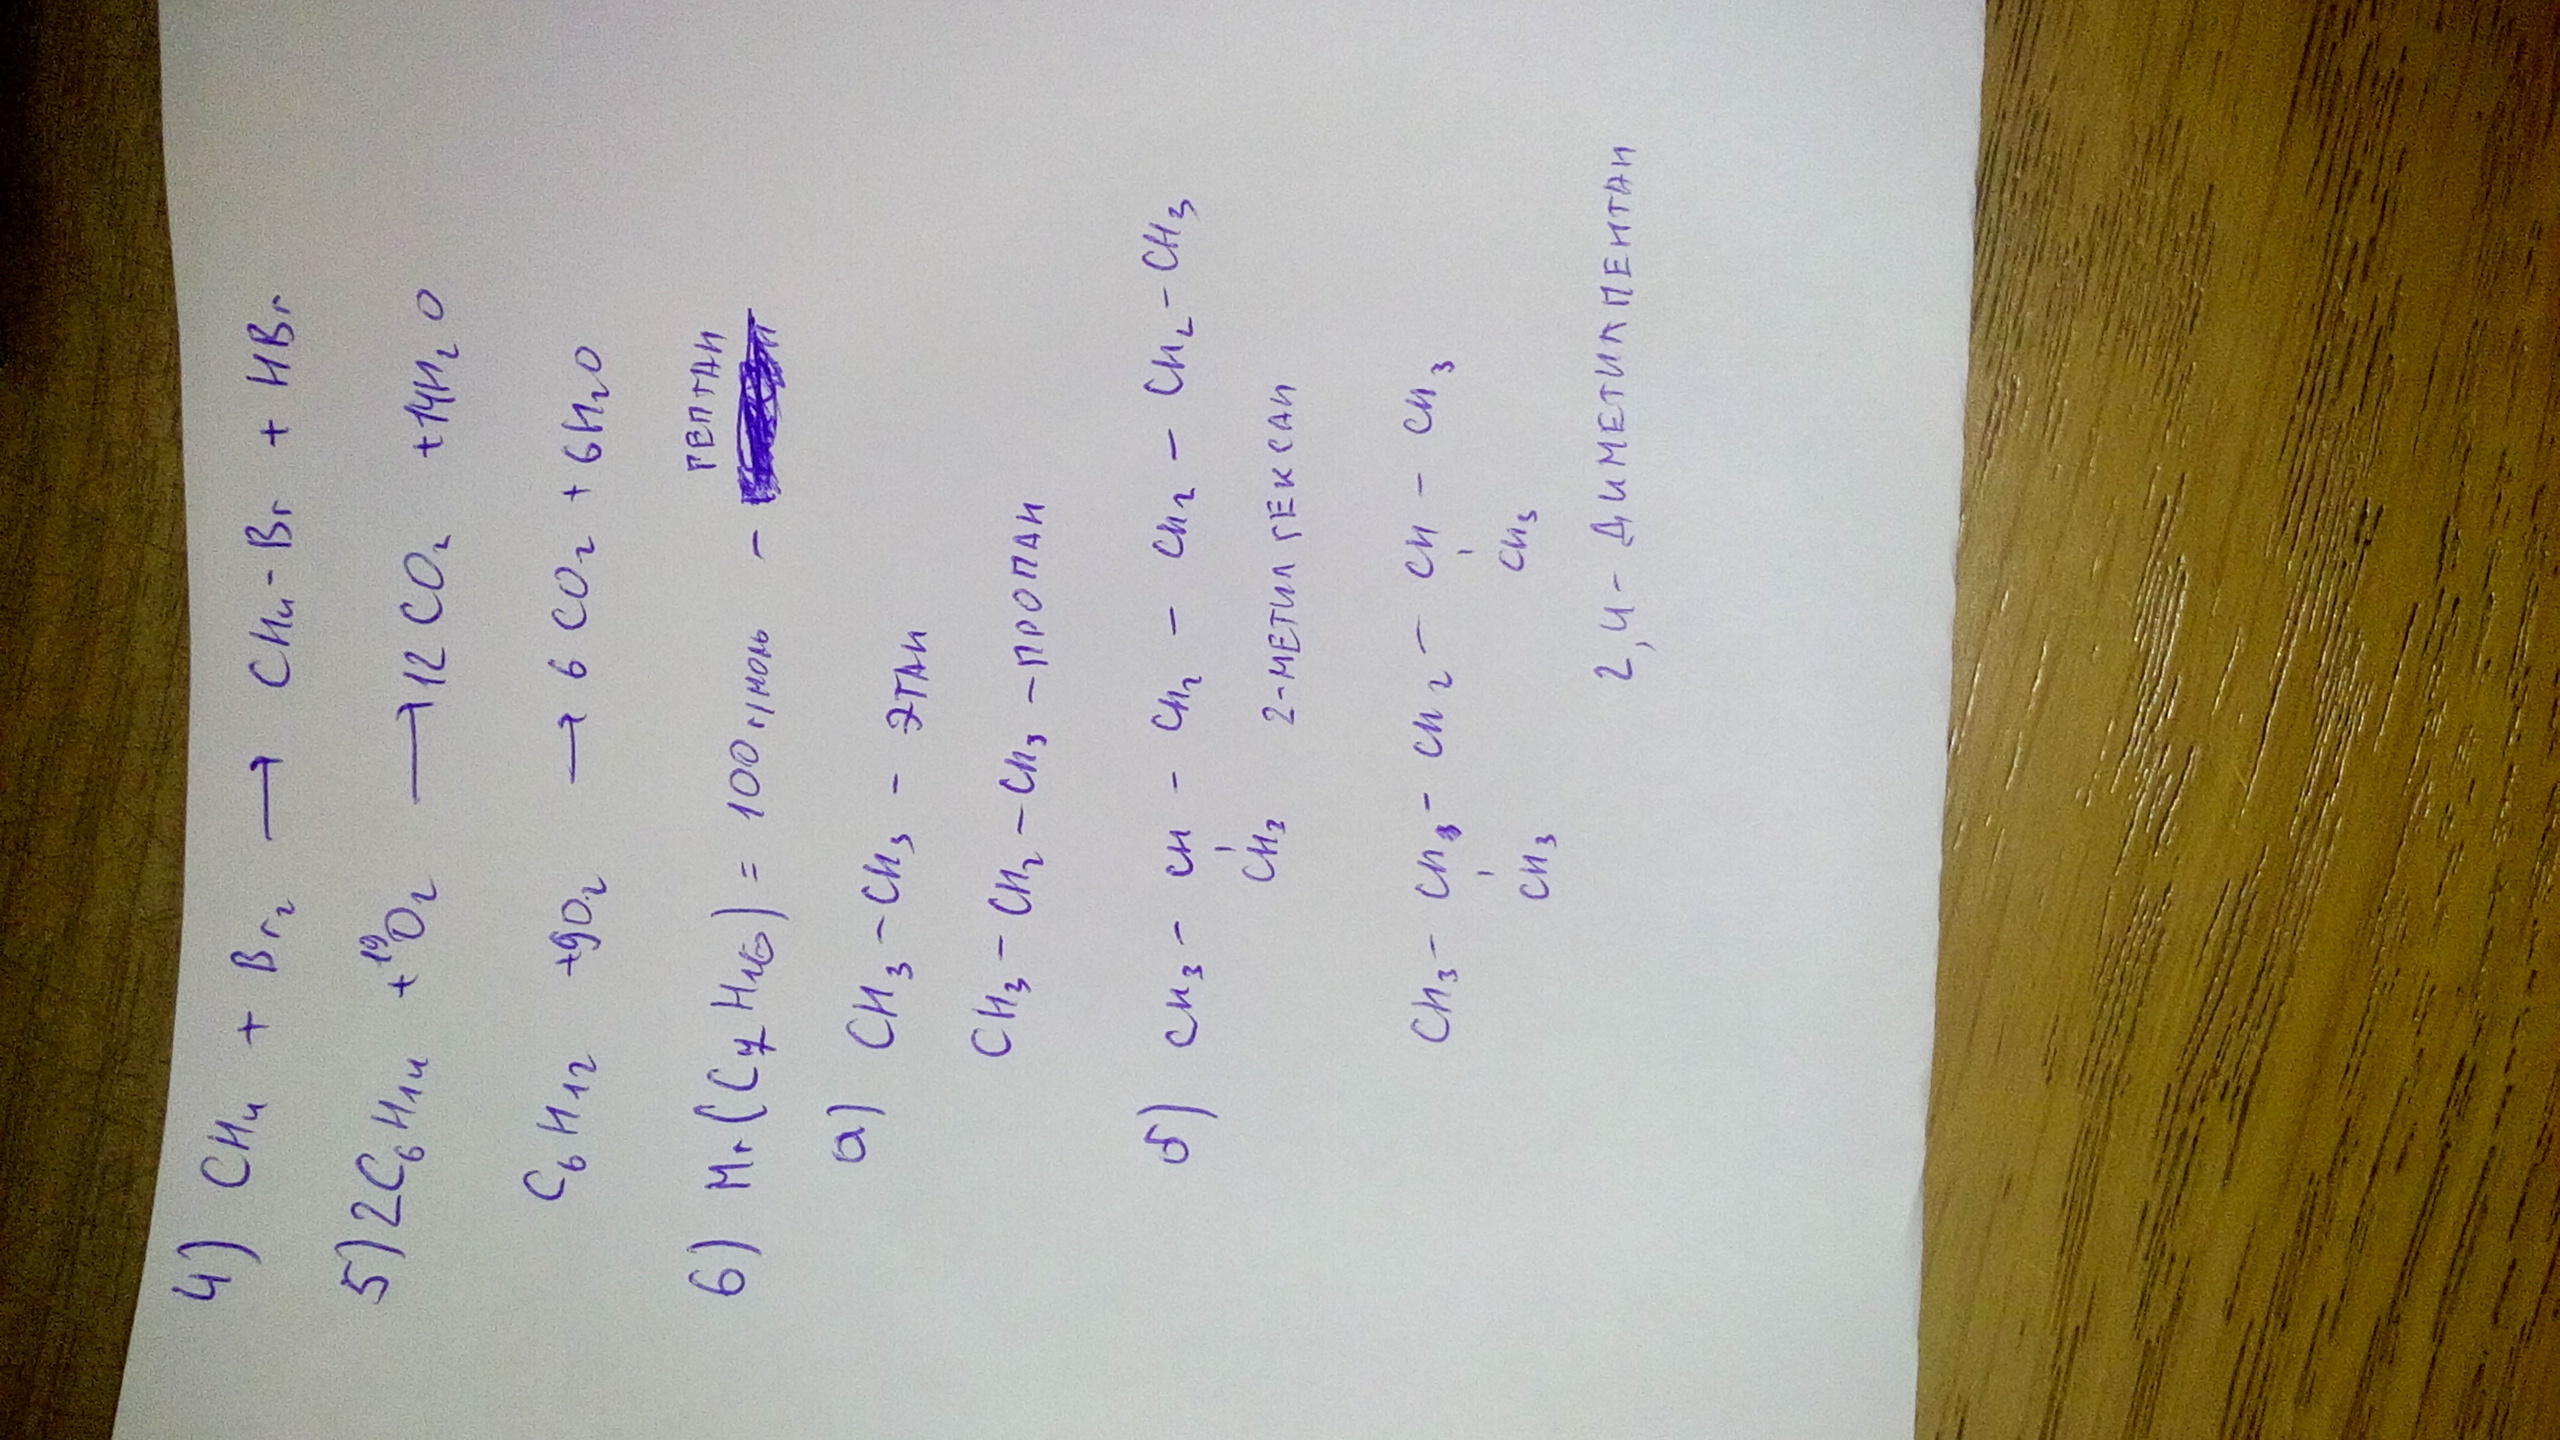 4) CH₄ + Br₂ → CH₄-Br + HBr
5) 2C₆H₁₄ + 19O₂ → 12CO₂ + 14H₂O
C₆H₁₂ + 9O₂ → 6CO₂ + 6H₂O
6) Mr(C₇H₁₆) = 100 г/моль - ГЕПТАН
а) CH₃-CH₃ - ЭТАН
CH₃-CH₂-CH₃ - ПРОПАН
б) CH₃ - CH - CH₂ - CH₂ - CH₂ - CH₃
CH₃ 2-МЕТИЛГЕКСАН
CH₃ - CH₃ - CH₂ - CH - CH₃
CH₃ CH₃
2,4-ДИМЕТИЛПЕНТАН